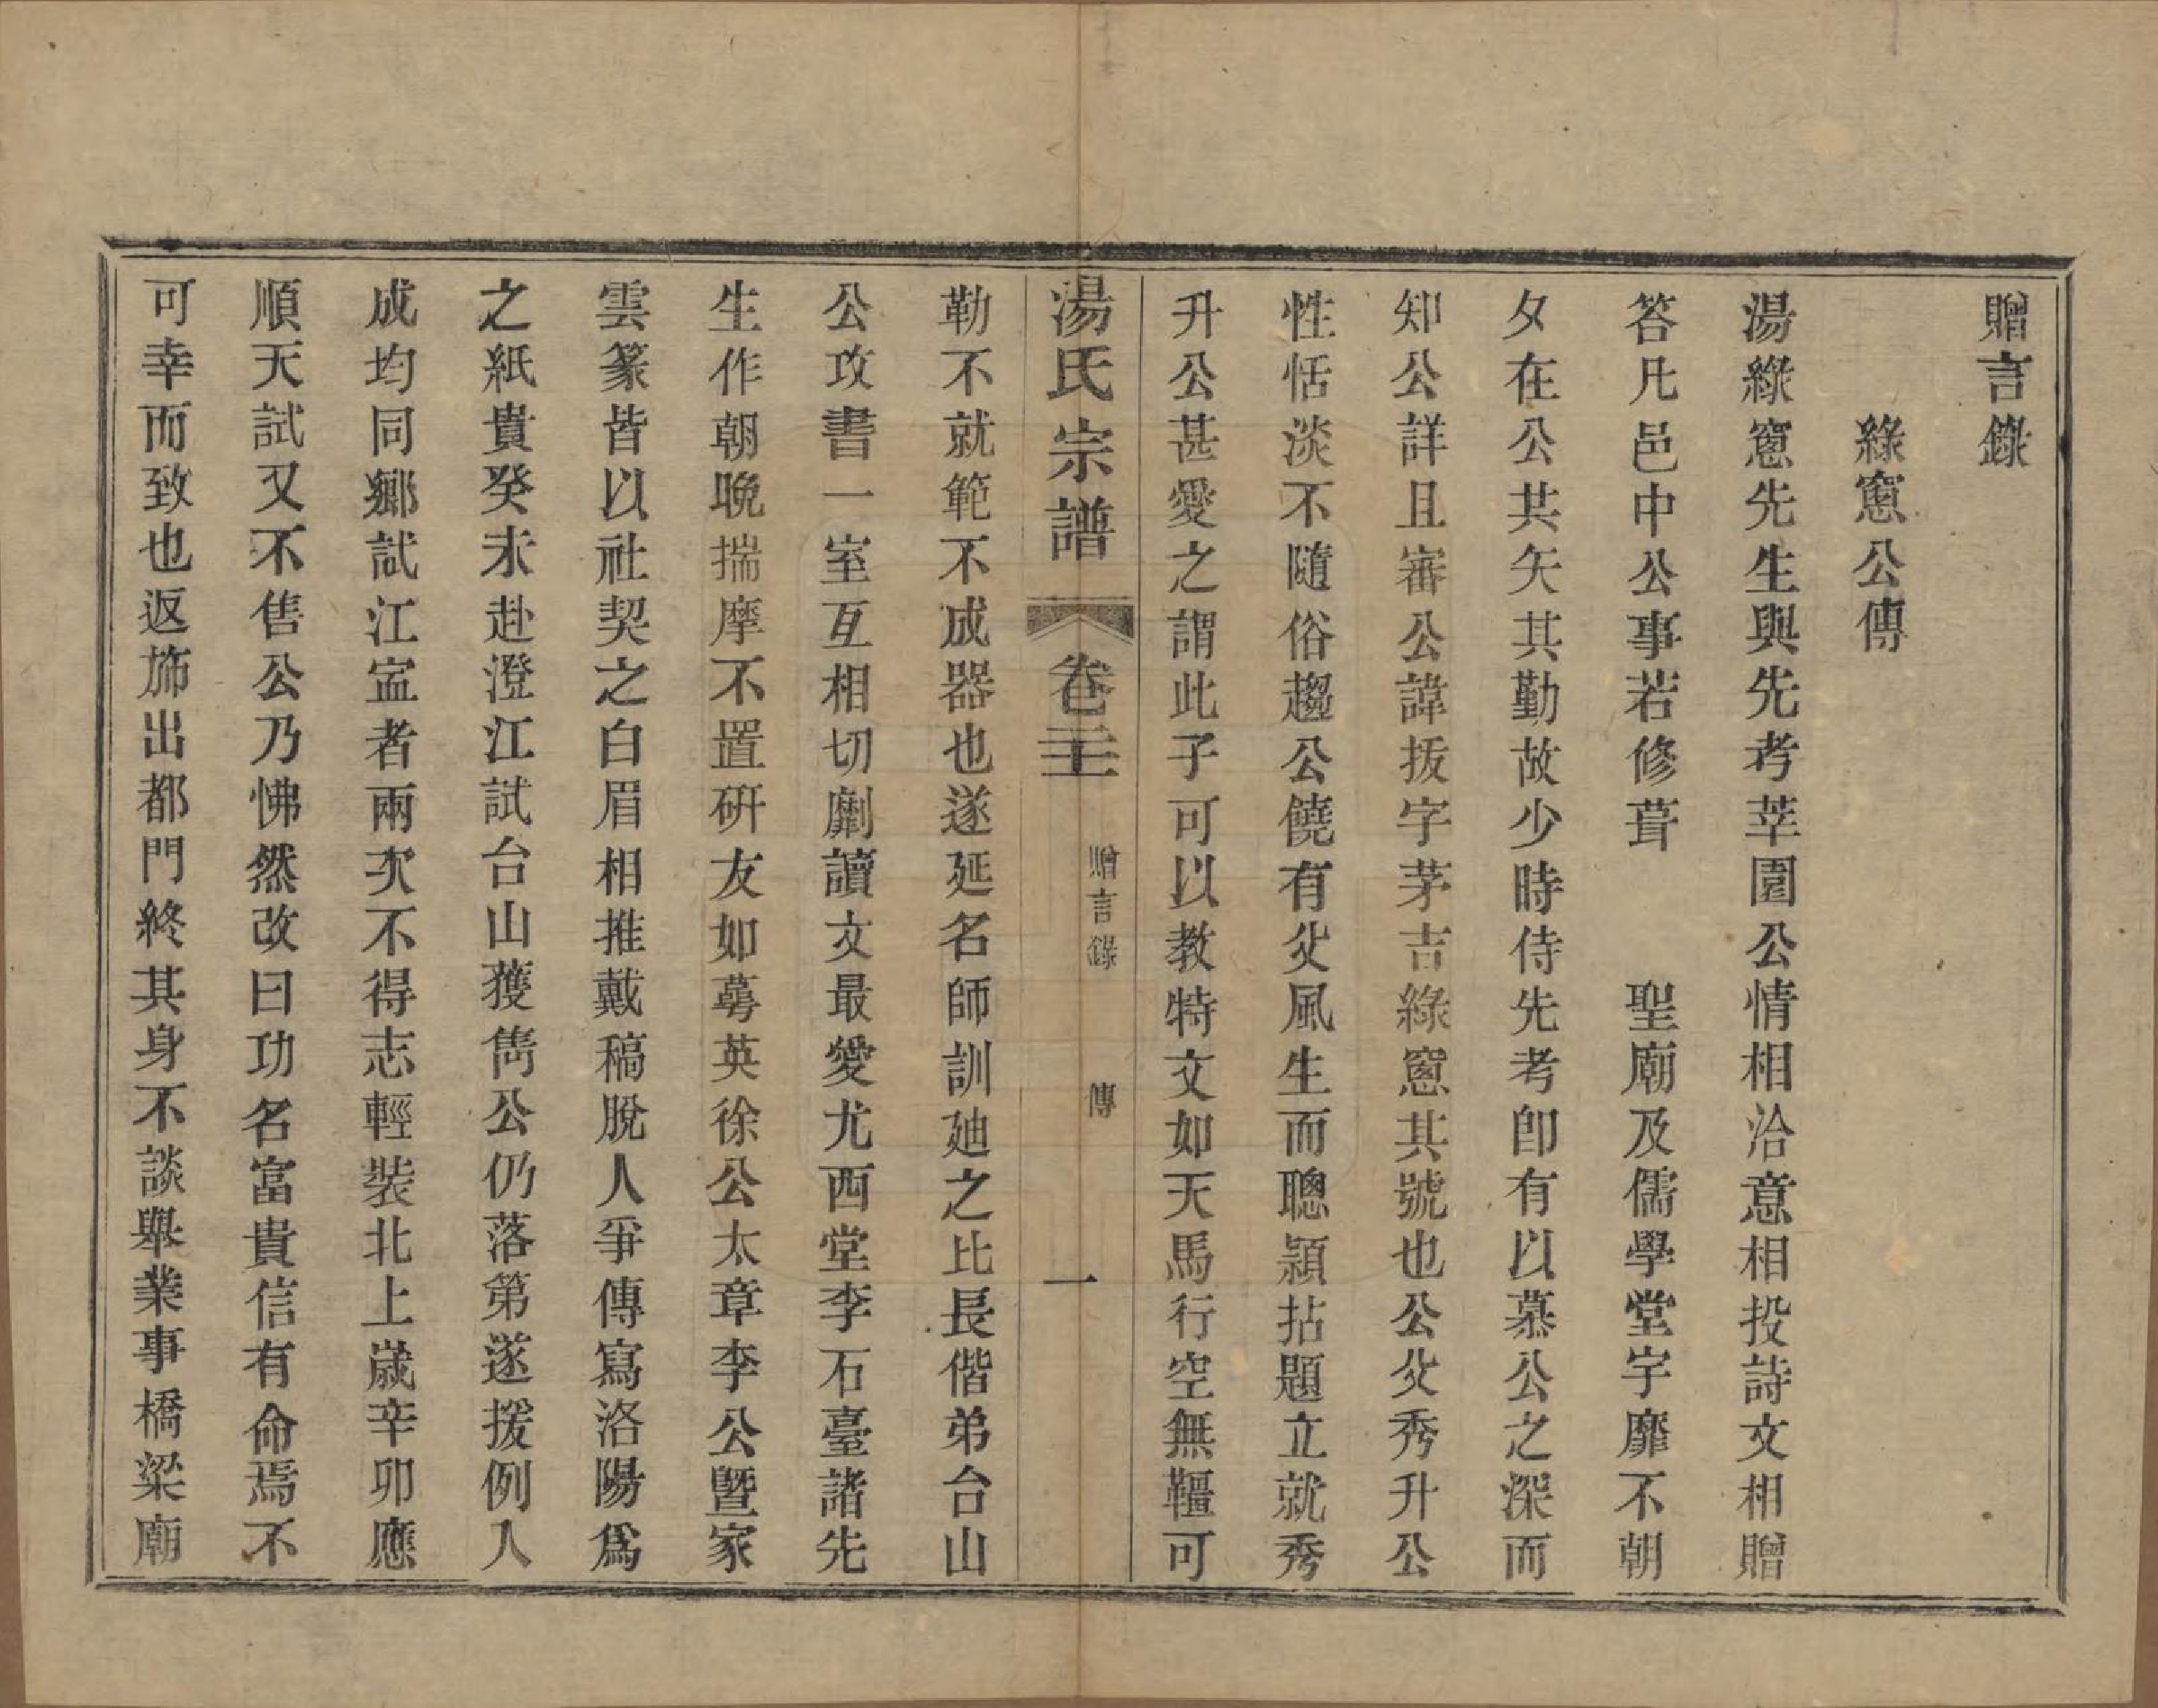 贈言錄
綠窻公傳
湯綠窻先生與先考莘園公情相洽意相投詩文相贈
答凡邑中公事若修葺　聖廟及儒學堂宇靡不朝
夕在公共矢其勤故少時侍先考卽有以慕公之深而
知公詳且審公諱拔字茅吉綠窻其號也公父秀升公
性恬淡不隨俗趨公饒有父風生而聰穎拈題立就秀
升公甚愛之謂此子可以教特文如天馬行空無韁可
湯氏宗譜　卷二十一　贈言錄　傳　一
勒不就範不成器也遂延名師訓廸之比長偕弟台山
公攻書一室互相切劘讀文最愛尤西堂李石臺諸先
生作朝晩揣摩不置硏友如蕚英徐公太章李公暨家
雲篆皆以社契之白眉相推戴稿脫人爭傳寫洛陽爲
之紙貴癸未赴澄江試台山獲雋公仍落第遂援例入
成均同鄉試江寍者兩次不得志輕裝北上歲辛卯應
順天試又不售公乃怫然改曰功名富貴信有命焉不
可幸而致也返旆出都門終其身不談舉業事橋梁廟